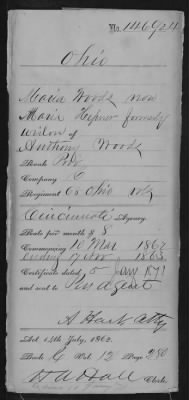 No. 146924
Ohio
Maria Woods now
Marie Hepner formerly
widow of
Anthony Woods
Rank Priv
Company
Regiment 65 Ohio Vols
Cincinnati Agency
Rate per month $ 8
Commencing 10 Mar 1862
ending 17 Nov 1863
Certificate dated 5 Jany 1871
and sent to Pens Agent
A Hart Atty
Act 14th July, 1862.
Book G Vol. 12 Page 280
H A Hall Clerk.